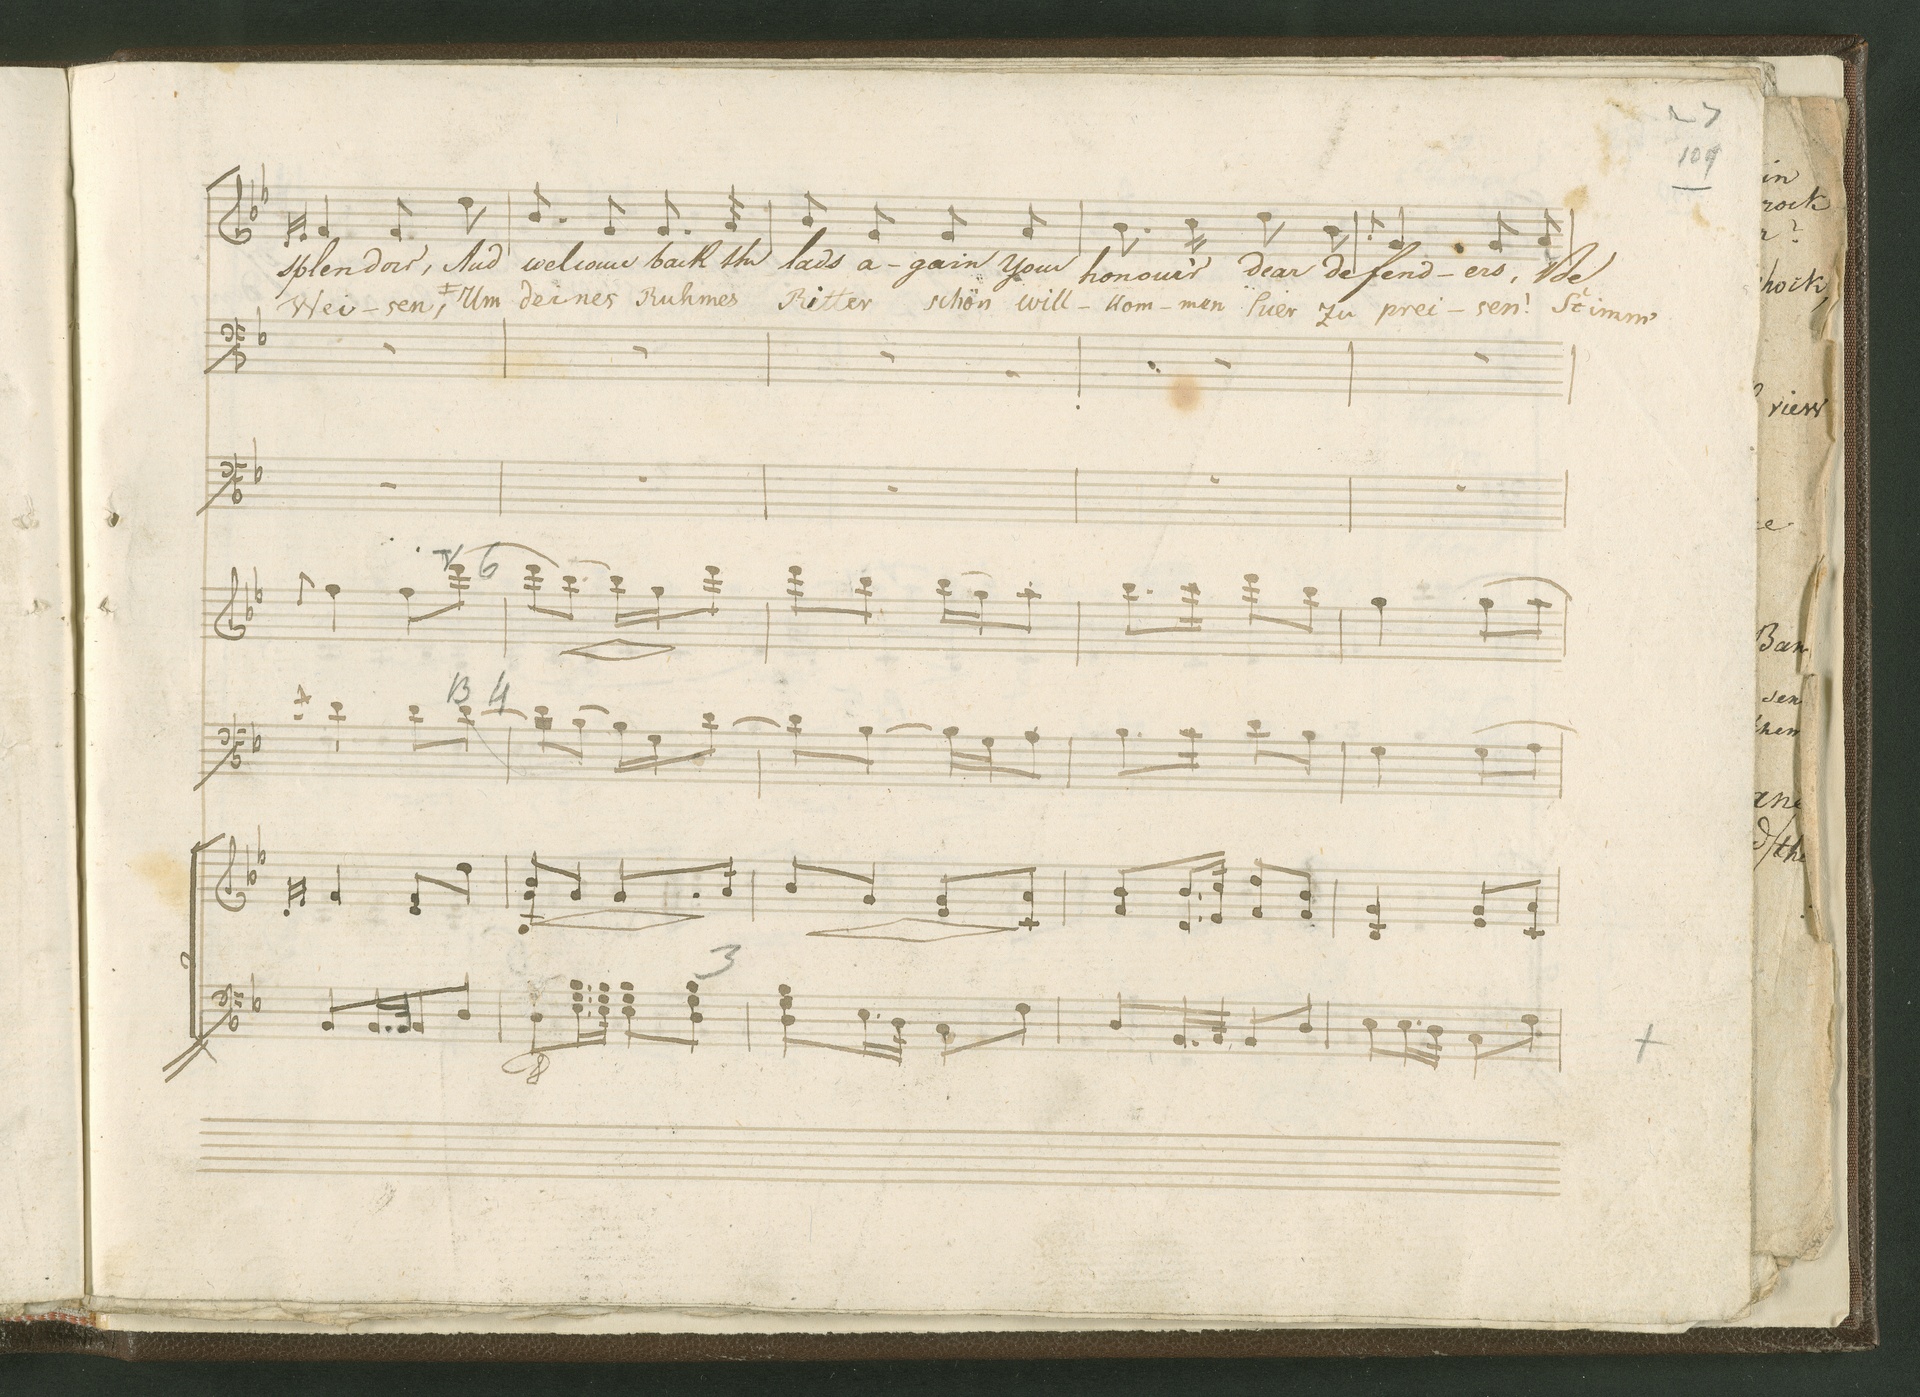 27
109
splendour, And welcome back the lads a-gain your honour'd dear defend-ers, We
Wei-sen, Um deines Ruhmes Ritter schön will-kom-men hier zu prei-sen! Stimm'
6
B 4
3
in
rock
r?
shock,
view
ce
Ban
sen
then
and
the